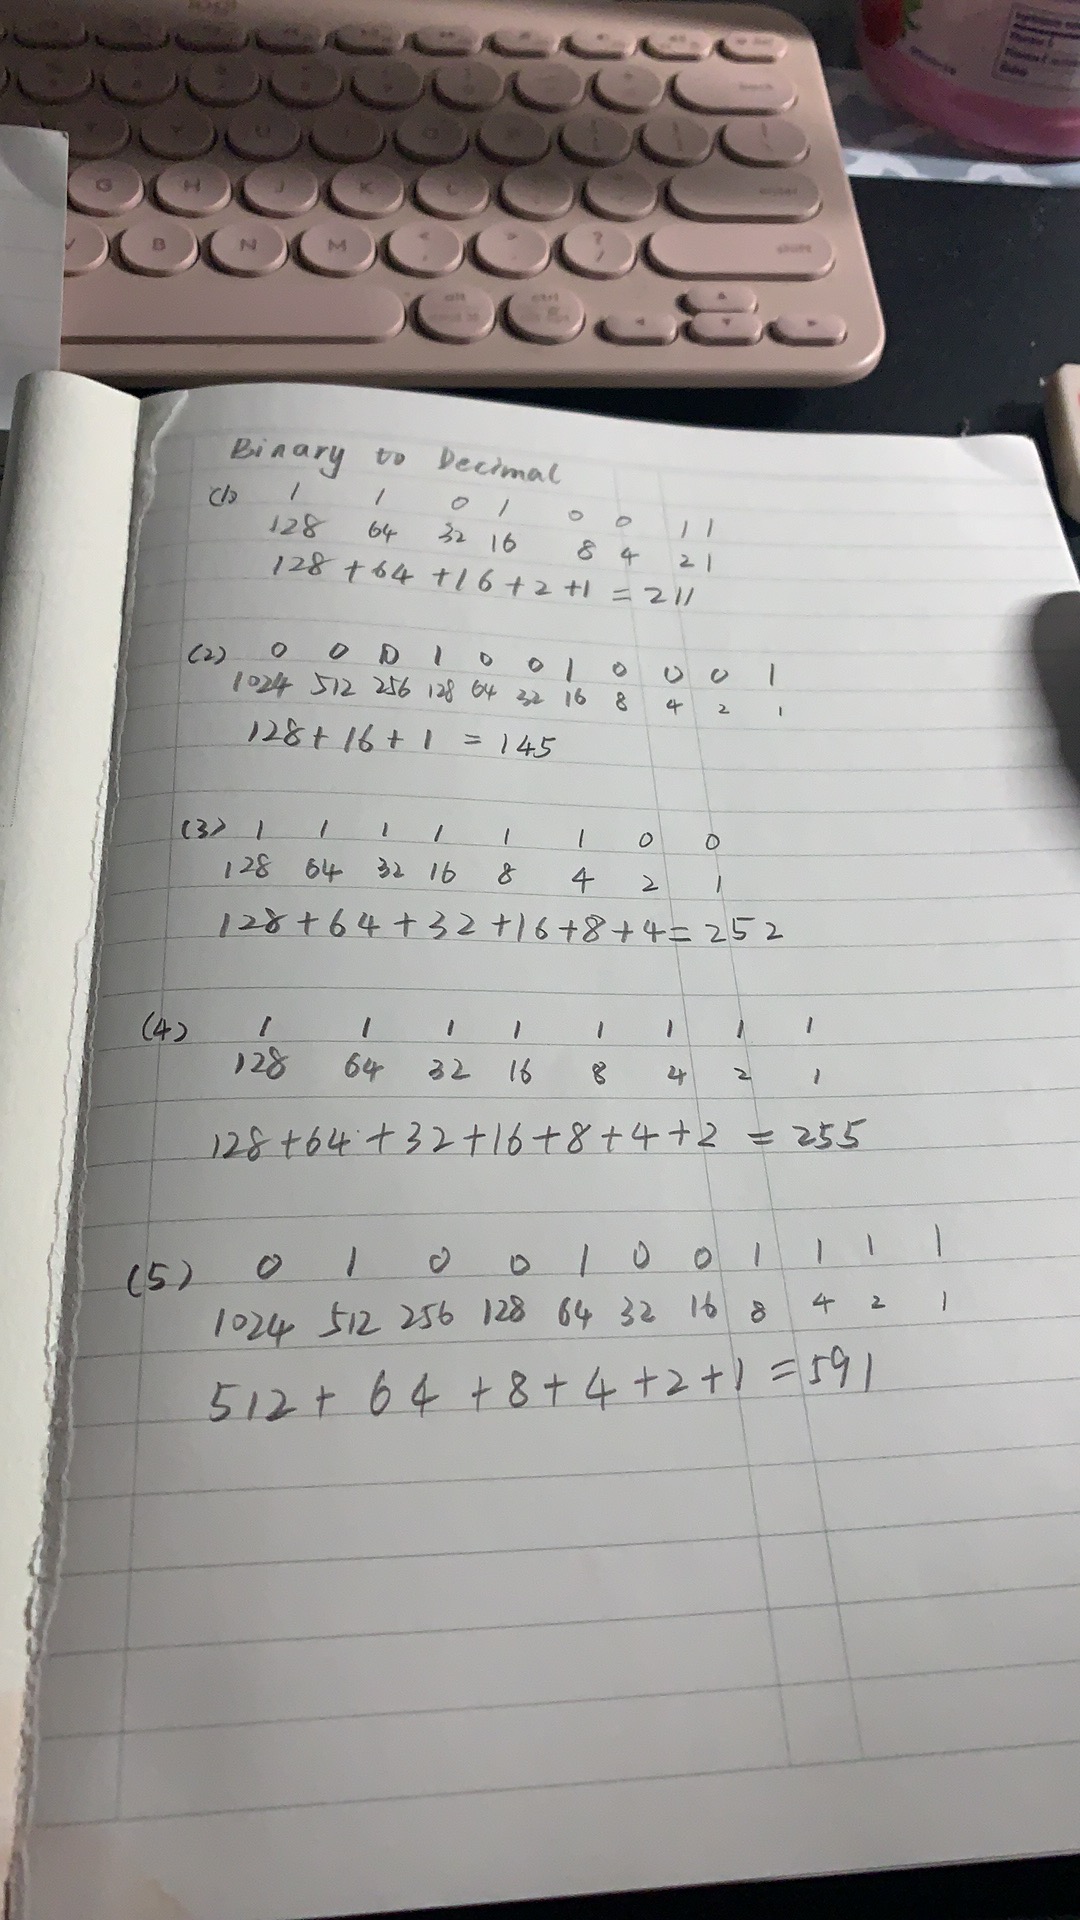 G H J K L enter
V B N M < , > . ? / shift
alt ctrl
Binary to Decimal
(1) 1 1 0 1 0 0 1 1
128 64 32 16 8 4 2 1
128 + 64 + 16 + 2 + 1 = 211
(2) 0 0 0 1 0 0 1 0 0 0 1
1024 512 256 128 64 32 16 8 4 2 1
128 + 16 + 1 = 145
(3) 1 1 1 1 1 1 0 0
128 64 32 16 8 4 2 1
128 + 64 + 32 + 16 + 8 + 4 = 252
(4) 1 1 1 1 1 1 1 1
128 64 32 16 8 4 2 1
128 + 64 + 32 + 16 + 8 + 4 + 2 = 255
(5) 0 1 0 0 1 0 0 1 1 1 1
1024 512 256 128 64 32 16 8 4 2 1
512 + 64 + 8 + 4 + 2 + 1 = 591